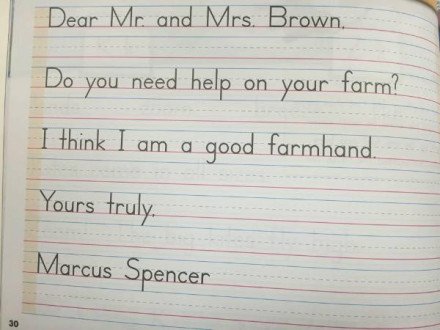 Dear Mr. and Mrs. Brown,
Do you need help on your farm?
I think I am a good farmhand.
Yours truly,
Marcus Spencer
30